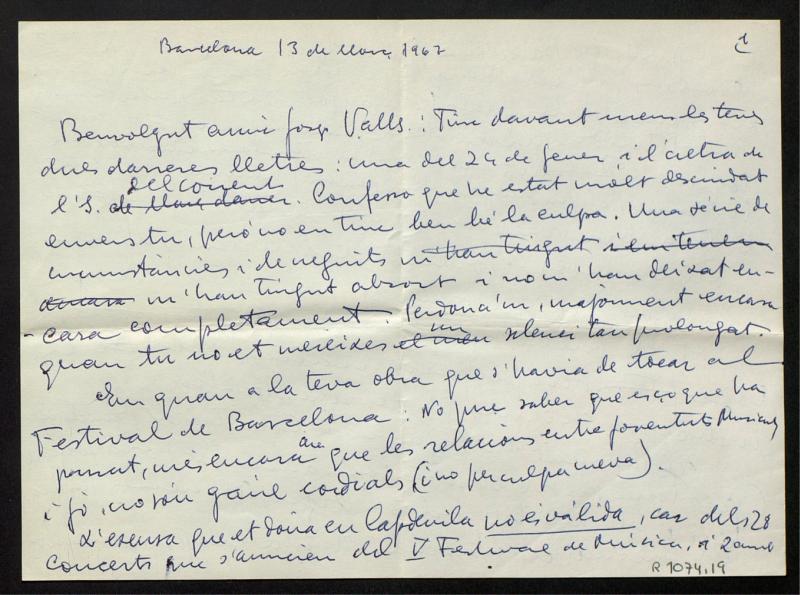 Barcelona 13 de març 1967
1
Benvolgut amic Josep Valls: Tinc davant meu les teves
dues darreres lletres: una del 24 de febrer i l'altra de
del corrent
l'S. de Març darrer. Confesso que he estat molt descuidat
envers tu, però no en tinc ben bé la culpa. Una sèrie de
circumstàncies i de neguits m'han tingut i em tenen
encara m'han tingut absort i no m'han deixat en-
-cara completament. Perdona'm, majorment encara
quan tu no et mereixes el meu un silenci tan prolongat.
En quan a la teva obra que s'havia de tocar al
Festival de Barcelona: No puc saber que és ço que ha
passat, més encara ara que les relacions entre Joventuts Musicals
i jo, no són gaire cordials (i no per culpa meva).
L'excusa que et dóna en Capdevila no és vàlida, car dels 28
concerts que s'anuncien del V Festival de Música, si 2 amb
R 1074,19